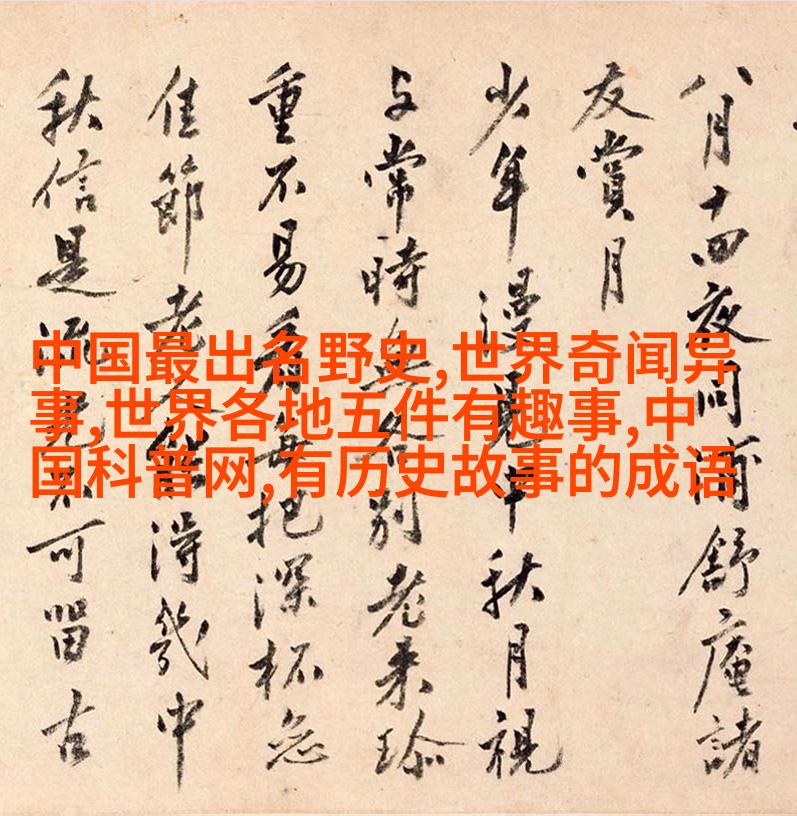 八月十四夜同浦舒庵諸
友賞月
少年漫見中秋月視
与常時無各別老来珎
重不易看每把深杯恋
佳節老人能得幾中
秋信是流光不可留古
中国最出名野史,世界奇闻异
事,世界各地五件有趣事,中
国科普网,有历史故事的成语